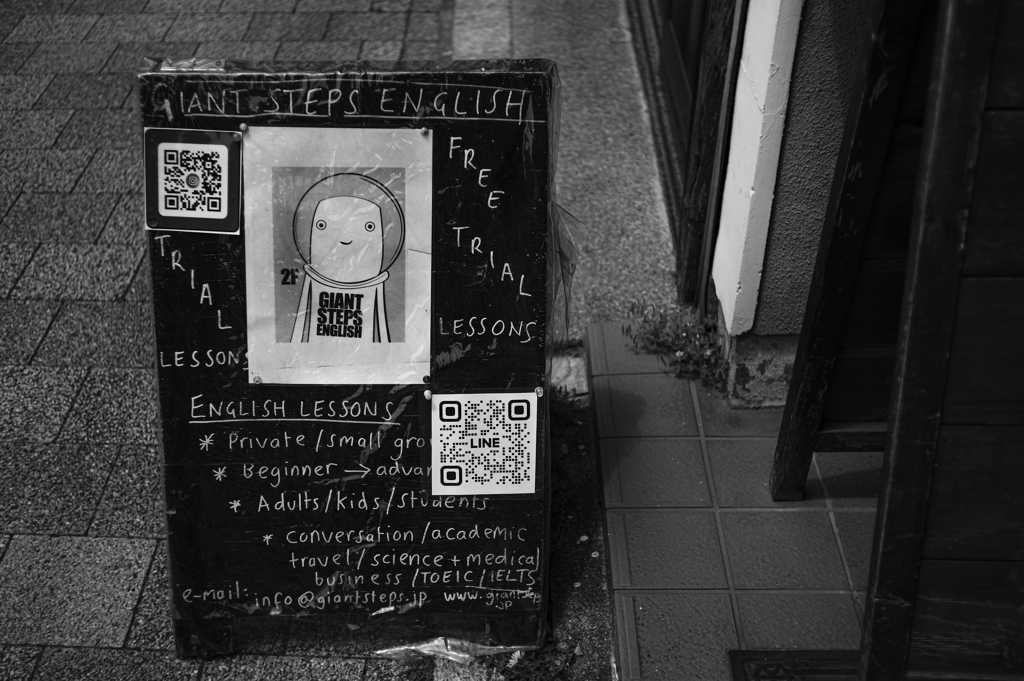 GIANT STEPS ENGLISH
TRIAL
LESSONS
2F
GIANT
STEPS
ENGLISH
FREE
TRIAL
LESSONS
ENGLISH LESSONS
LINE
* Private/small gro
* Beginner → advan
* Adults/kids/students
* conversation/academic
travel/science + medical
business/TOEIC/IELTS
e-mail: info@giantsteps.jp www.giantstep
jp